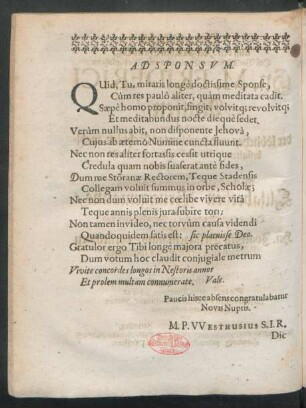 AD SPONSVM.
QUid, Tu, mitaris longè doctissime Sponse,
Cùm res paulò aliter, quàm meditata cadit.
Sæpè homo proponit, fingit, volvitq; revolvitq;
Et meditabundus nocte dieque sedet,
Verùm nullus abit, non disponente Jehovâ,
Cujus ab æterno Numine cuncta fluunt.
Nec non res aliter fortassis cessit utrique
Credula quam nobis suaserat antè fides,
Dum me Storanæ Rectorem, Teque Stadensis
Collegam voluit summus in orbe, Scholæ;
Nec non dum voluit me cœlibe vivere vitâ
Teque annis plenis jura subire tori;
Non tamen invideo, nec torvùm causa videndi
Quandoquidem satis est: sic placuisse Deo.
Gratulor ergo Tibi longè majora precatus,
Dum votum hoc claudit conjugiale metrum
Vivite concordes longos in Nestoris annos
Et prolem multam connumerate. Vale.
Paucis hisce absens congratulabatur
Novis Nuptis.
M. P. VVesthusius S. I. R.
Dic